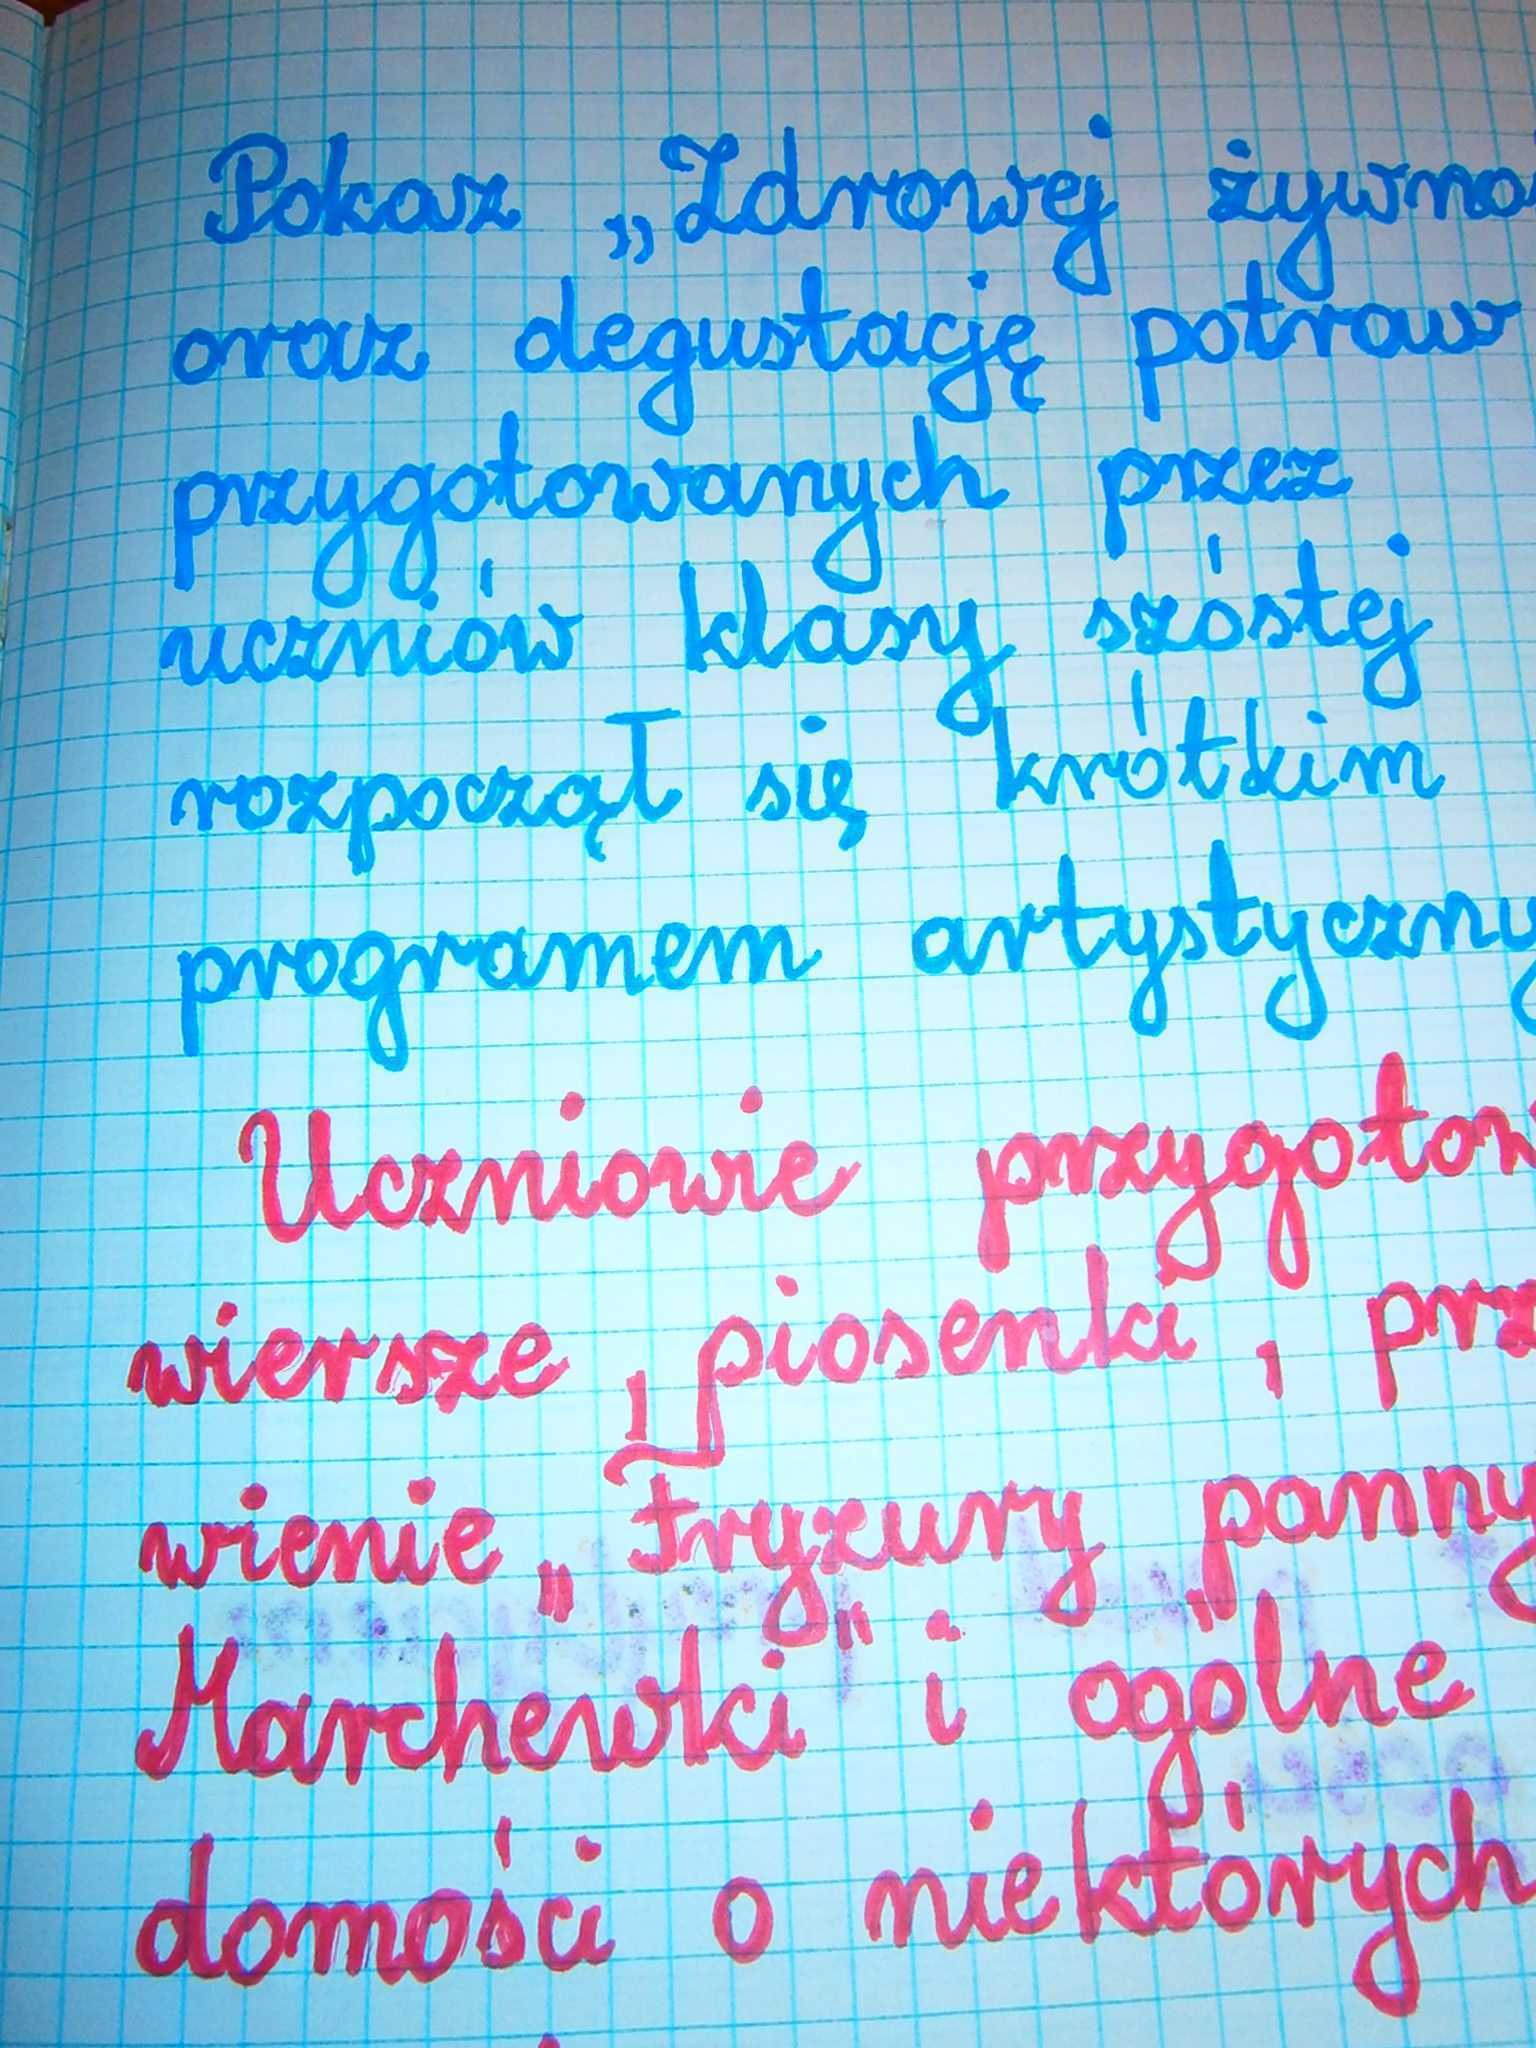 Pokaz „Zdrowej żywnoś
oraz degustację potraw
przygotowanych przez
uczniów klasy szóstej
rozpoczął się krótkim
programem artystyczny
Uczniowie przygotow
wiersze, piosenki, prz
wienie „Fryzury panny
Marchewki" i ogólne
domości o niektórych